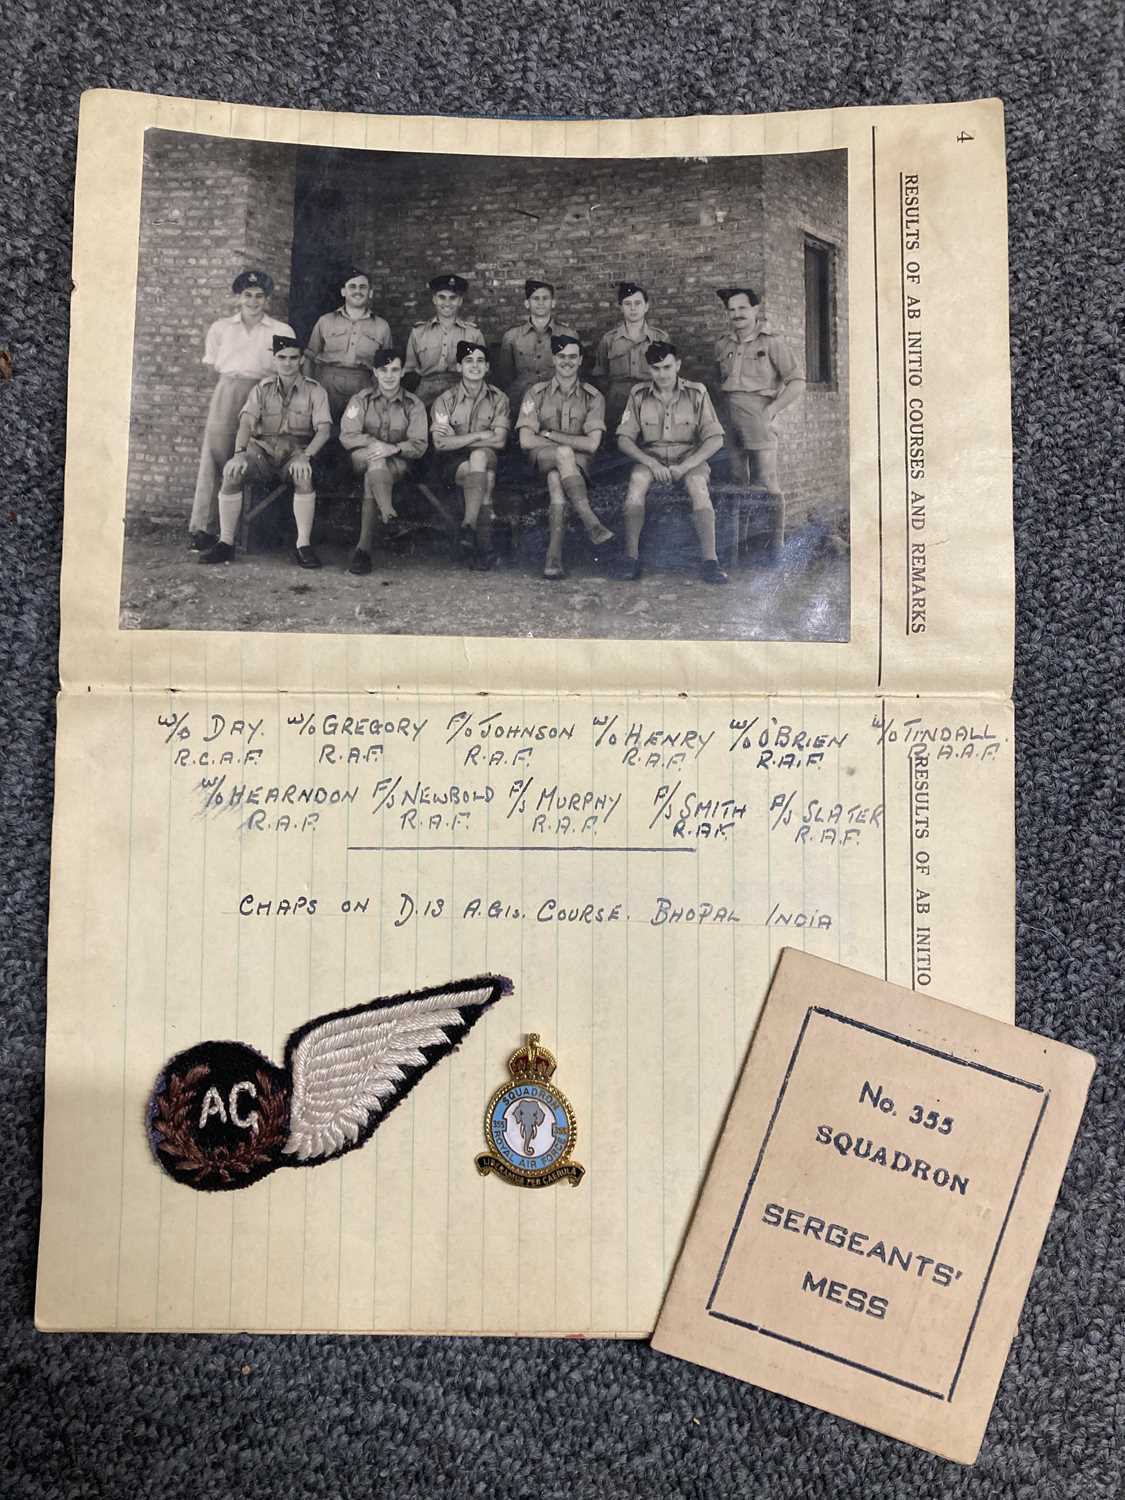 4
RESULTS OF AB INITIO COURSES AND REMARKS
W/O DAY. W/O GREGORY F/S JOHNSON W/O HENRY W/O O'BRIEN W/O TINDALL.
R.C.A.F. R.A.F. R.A.F. R.A.F. R.A.F. R.A.A.F.
W/O HEARNDON F/S NEWBOLD F/S MURPHY F/S SMITH F/S SLATER
R.A.F. R.A.F. R.A.F. R.A.F. R.A.F.
RESULTS OF AB INITIO
CHAPS ON D.13 A.G.I's. COURSE. BHOPAL INDIA
AG
SQUADRON
355 355
ROYAL AIR FORCE
LIBERAMUS PER CAERULA
No. 355
SQUADRON
SERGEANTS'
MESS